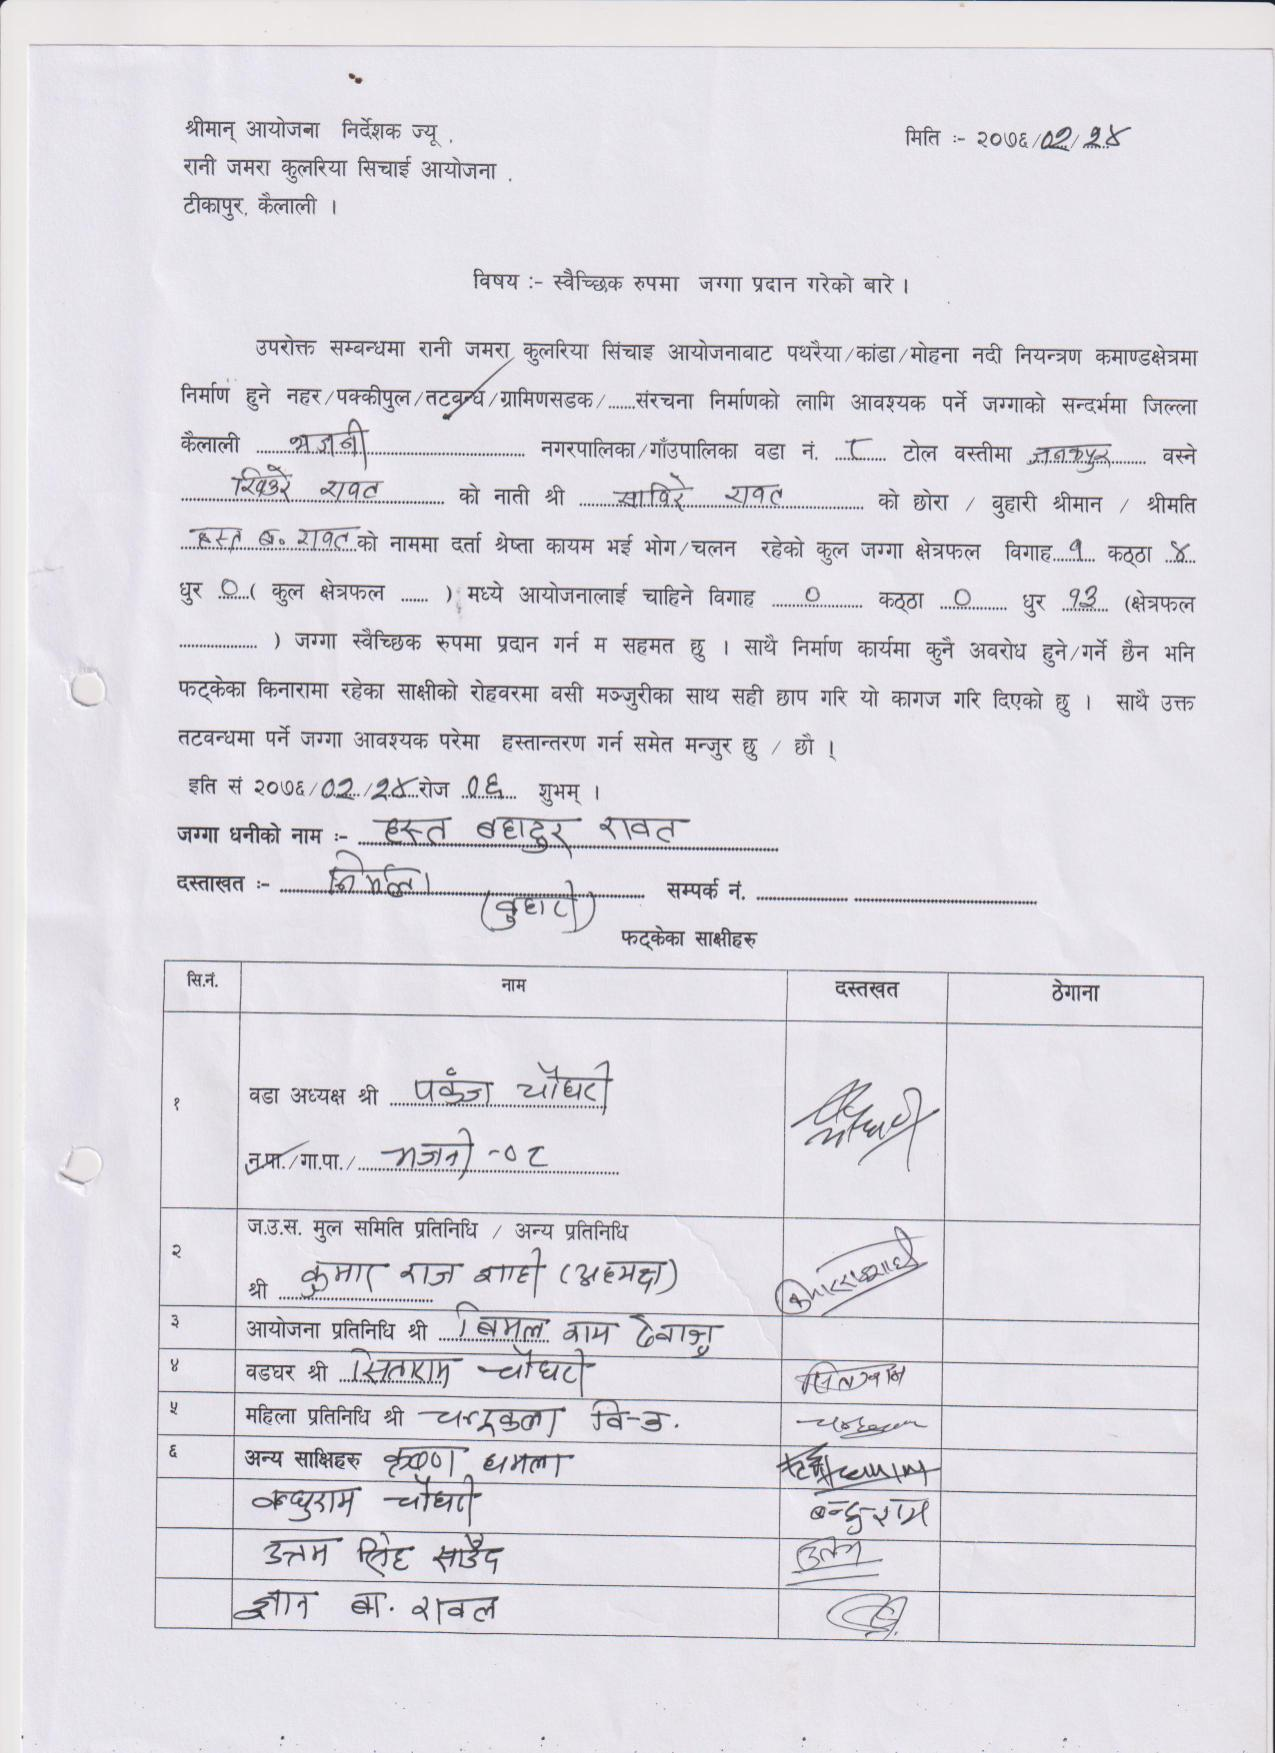 श्रीमान् आयोजना निर्देशक ज्यू ,
मिति :- २०७६/०२/२४
रानी जमरा कुलरिया सिचाई आयोजना .
टीकापुर, कैलाली ।
विषय :- स्वैच्छिक रुपमा जग्गा प्रदान गरेको बारे ।
उपरोक्त सम्बन्धमा रानी जमरा कुलरिया सिंचाइ आयोजनावाट पथरैया/कांडा/मोहना नदी नियन्त्रण कमाण्डक्षेत्रमा
निर्माण हुने नहर/पक्कीपुल/तटबन्ध/ग्रामिणसडक/......संरचना निर्माणको लागि आवश्यक पर्ने जग्गाको सन्दर्भमा जिल्ला
कैलाली भजनी नगरपालिका/गाँउपालिका वडा नं. ८ टोल वस्तीमा जनकपुर वस्ने
रावत को नाती श्री रावत को छोरा / बुहारी श्रीमान / श्रीमति
हस्त ब. रावत को नाममा दर्ता श्रेष्ता कायम भई भोग/चलन रहेको कुल जग्गा क्षेत्रफल विगाह १ कठ्ठा ४
धुर ०( कुल क्षेत्रफल ...... ) मध्ये आयोजनालाई चाहिने विगाह ० कठ्ठा ० धुर १३ (क्षेत्रफल
................... ) जग्गा स्वैच्छिक रुपमा प्रदान गर्न म सहमत छु । साथै निर्माण कार्यमा कुनै अवरोध हुने/गर्ने छैन भनि
फट्केका किनारामा रहेका साक्षीको रोहवरमा वसी मञ्जुरीका साथ सही छाप गरि यो कागज गरि दिएको छु । साथै उक्त
तटवन्धमा पर्ने जग्गा आवश्यक परेमा हस्तान्तरण गर्न समेत मन्जुर छु / छौ ।
इति सं २०७६/०२/२४ रोज ०६ शुभम् ।
जग्गा धनीको नाम :- हस्त बहादुर रावत
दस्ताखत :- निर्मला सम्पर्क नं. ....................
(बुहारी)
फट्केका साक्षीहरु
सि.नं. नाम दस्तखत ठेगाना
१ वडा अध्यक्ष श्री पकंज चौधरी
न.पा./गा.पा./ भजनी -०८
२ ज.उ.स. मुल समिति प्रतिनिधि / अन्य प्रतिनिधि
श्री कुमार राज शाही (अध्यक्ष)
३ आयोजना प्रतिनिधि श्री बिमल राम
४ वडघर श्री सिताराम चौधरी
५ महिला प्रतिनिधि श्री चन्द्रकला वि.क.
६ अन्य साक्षिहरु कृष्ण धमला
बन्धुराम चौधरी बन्धुराम
उत्तम सिंह साउँद उत्तम
ज्ञान बा. रावल